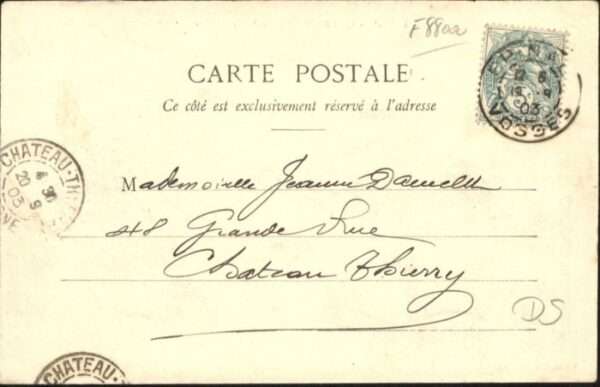 F8802
CARTE POSTALE
Ce côté est exclusivement réservé à l'adresse
EPINAL
VOSGES
03
CHATEAU-TH
20 9
03
Mademoiselle Jeanne
48 Grande Rue
Chateau Thierry
DS
CHATEAU-T